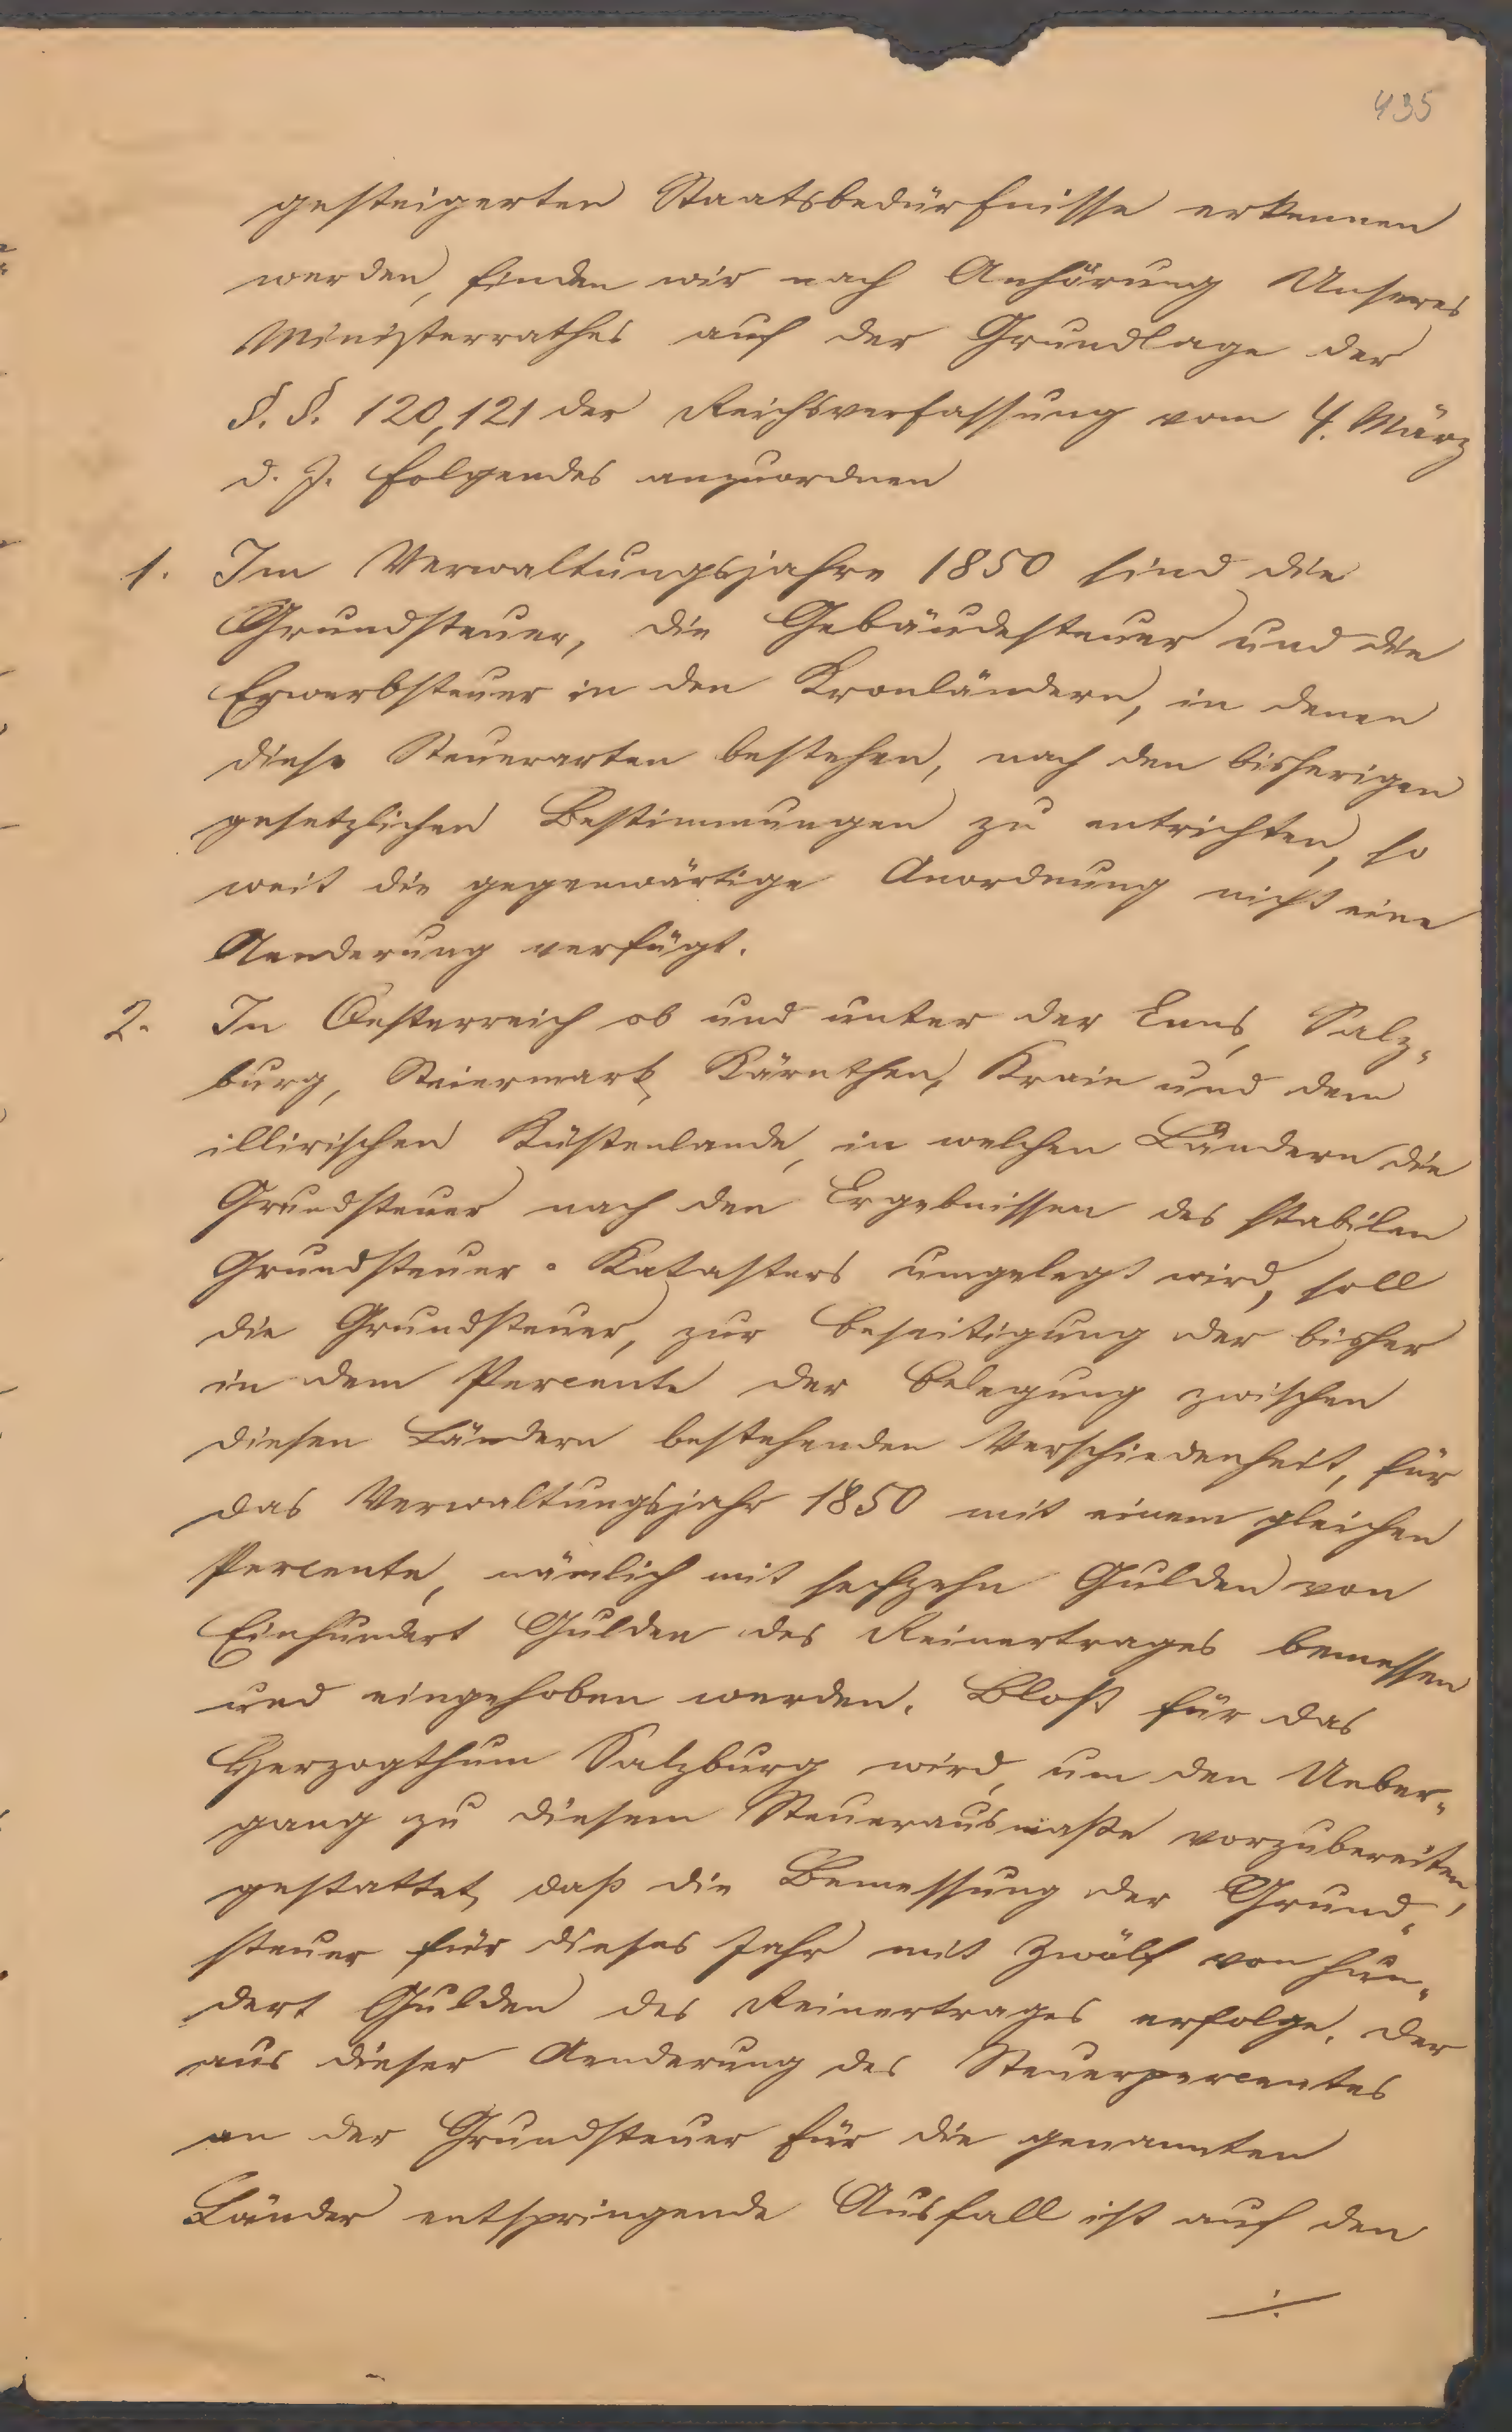 435
gesteigerten Staatsbedürfnisse erkennen
werden, finden wir nach Anhörung Unseres
Ministerrathes auf der Grundlage der
§. §. 120, 121 der Reichsverfassung vom 4. März
d. J. folgendes anzuordnen
1. Im Verwaltungsjahre 1850 sind die
Grundsteuer, die Gebäudesteuer und die
Erwerbsteuer in den Kronländern, in denen
diese Steuerarten bestehen, nach den bisherigen
gesetzlichen Bestimmungen zu entrichten, so
weit die gegenwärtige Anordnung nicht eine
Aenderung verfügt.
2. In Oesterreich ob und unter der Enns, Salz-
burg, Steiermark, Kärnthen, Krain und dem
illirischen Küstenlande, in welchen Ländern die
Grundsteuer nach den Ergebnissen des stabilen
Grundsteuer-Katasters umgelegt wird, soll
die Grundsteuer, zur Beseitigung der bisher
in dem Percente der Belegung zwischen
diesen Ländern bestehenden Verschiedenheit, für
das Verwaltungsjahr 1850 mit einem gleichen
Percente, nämlich mit sechzehn Gulden von
Einhundert Gulden des Reinertrages bemessen
und eingehoben werden. Bloß für das
Herzogthum Salzburg wird, um den Ueber-
gang zu diesem Steuerausmaße vorzubereiten,
gestattet, daß die Bemessung der Grund-
steuer für dieses Jahr mit Zwölf von hun-
dert Gulden des Reinertrages erfolge. Der
aus dieser Aenderung des Steuerpercentes
an der Grundsteuer für die genannten
Länder entspringende Ausfall ist auf den
./.